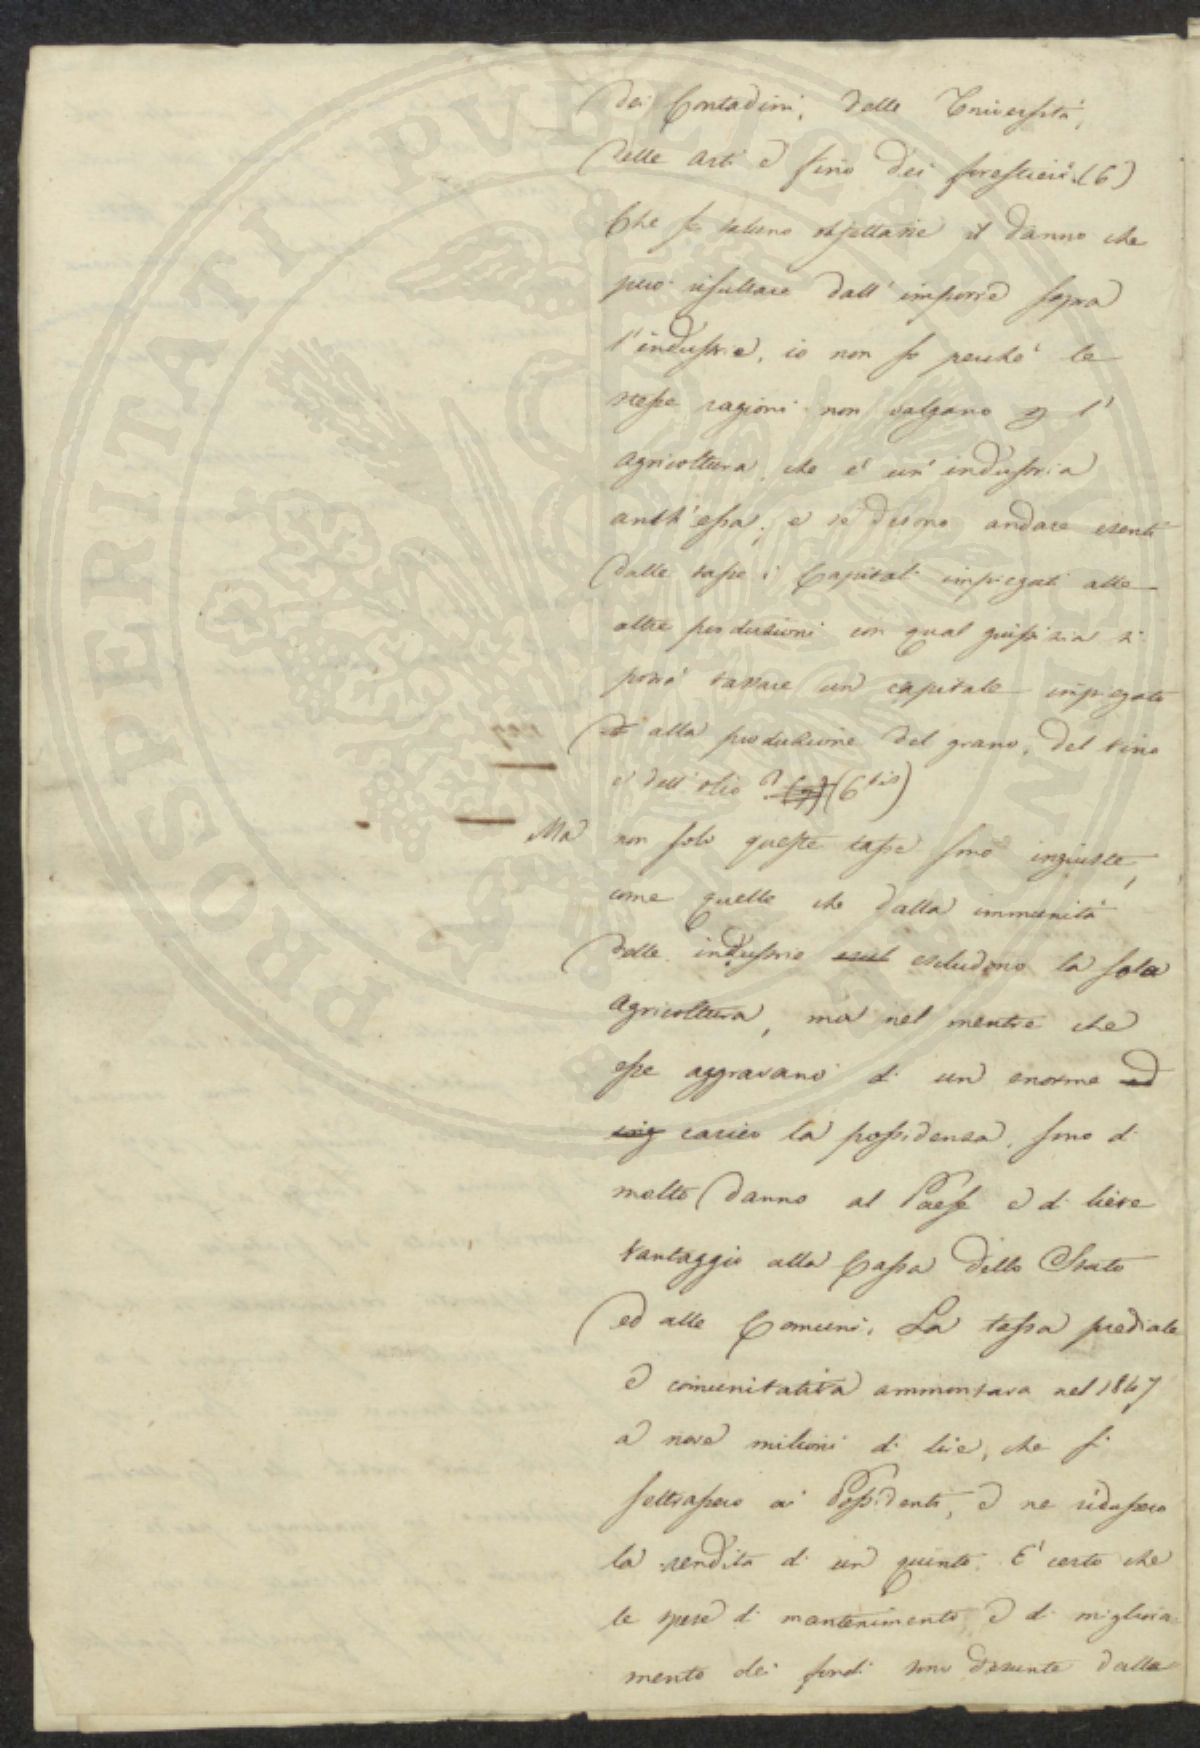 dei Contadini, delle Università,
delle arti e fino dei forestieri. (6)
Che se taluno obiettasse il danno che
può risultare dall'imporre sopra
l'industria, io non so perché le
stesse ragioni non valgano p l'
agricoltura, che è un'industria
anch'essa; e se devono andare esenti
dalle tasse i Capitali impiegati alle
altre produzioni con qual giustizia si
potrà tassare un capitale impiegato
alla produzione del grano, del vino
e dell'olio? (7) (6 bis)
Ma non solo queste tasse sono ingiuste,
come quelle che dalla immunità
delle industrie escl escludono la sola
agricoltura, ma nel mentre che
esse aggravano di un enorme ed
ing carico la possidenza, sono di
molto danno al Paese e di lieve
vantaggio alla Cassa dello Stato
ed alle Comuni. La tassa prediale
e comunitativa ammontava nel 1847
a nove milioni di lire, che si
sottrassero ai Possidenti, e ne ridussero
la rendita di un quinto. E' certo che
le spese di mantenimento e di migliora
mento dei fondi sono desunte dalla
PROSPERITATI PVBLICAE AVGENDAE